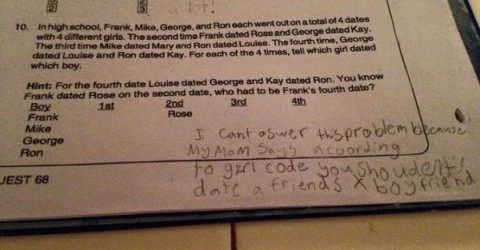 a lot!
10. In high school, Frank, Mike, George, and Ron each went out on a total of 4 dates
with 4 different girls. The second time Frank dated Rose and George dated Kay.
The third time Mike dated Mary and Ron dated Louise. The fourth time, George
dated Louise and Ron dated Kay. For each of the 4 times, tell which girl dated
which boy.
Hint: For the fourth date Louise dated George and Kay dated Ron. You know
Frank dated Rose on the second date, who had to be Frank's fourth date?
Boy 1st 2nd 3rd 4th
Frank Rose
Mike
George
Ron
I cant aswer this problem because
My Mom Says acoording
to girl code you shoudent
date a friends X boyfriend
UEST 68